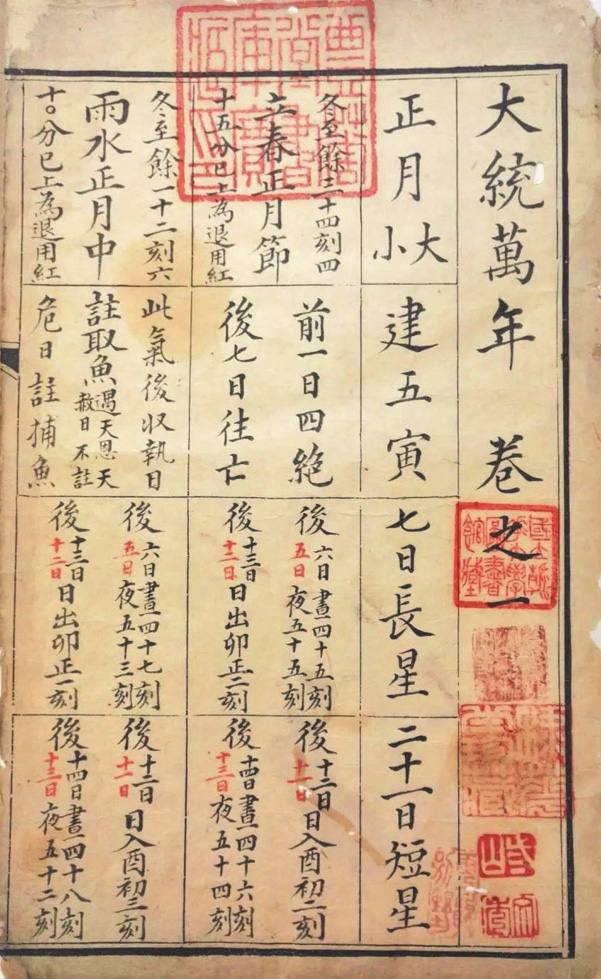 大統萬年 卷之一
正月大小
建五寅
七日長星
二十一日短星
冬至餘三十四刻四
立春正月節
十五分已上為退用紅
前一日四絕
後七日往亡
後六日晝四十五刻
五日夜五十五刻
後十三日十二日日出卯正二刻
後十二日十一日日入酉初二刻
後十四日晝四十六刻
十三日夜五十四刻
冬至餘一十二刻六
雨水正月中
十〇分已上為退用紅
此氣後収執日
註取魚遇天恩天赦日不註
危日註捕魚
後六日晝四十七刻
五日夜五十三刻
後十三日十二日日出卯正一刻
後十二日十一日日入酉初三刻
後十四日晝四十八刻
十三日夜五十二刻